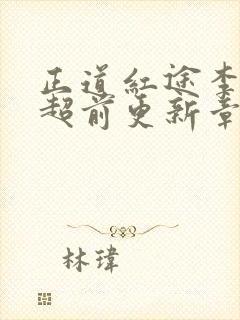 正道紅途李
超前更新章
林瑋